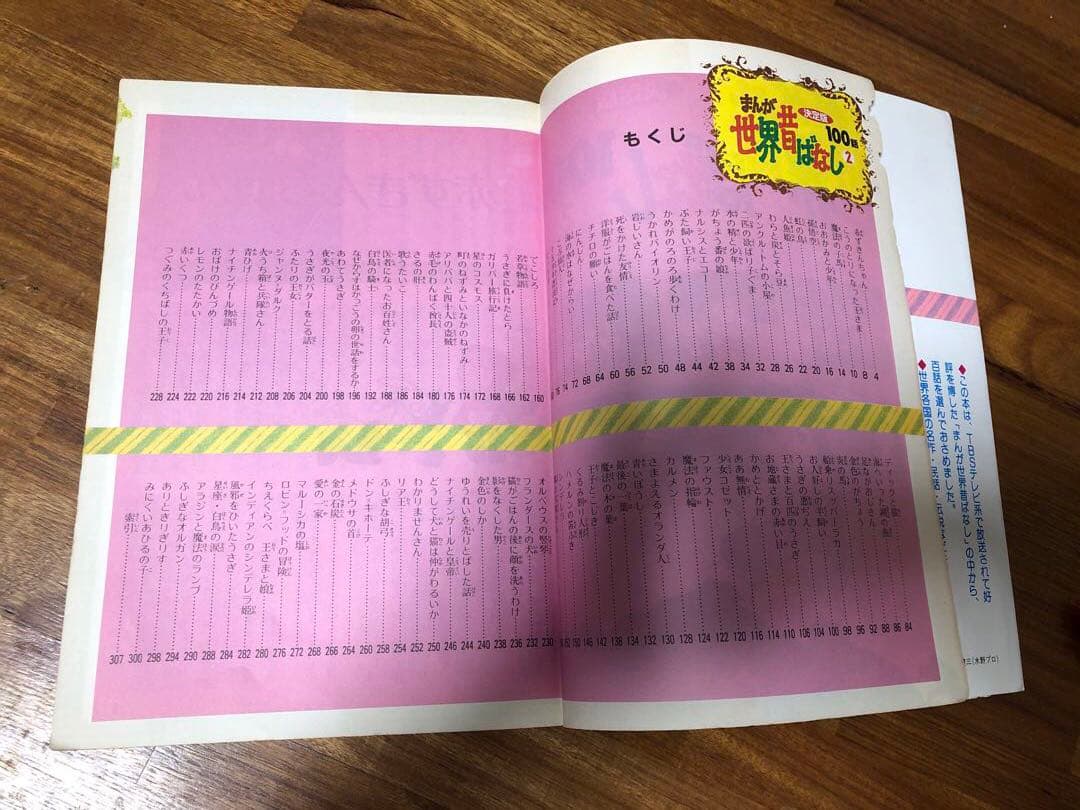 まんが
決定版
世界昔ばなし
100話
2
もくじ
赤ずきんちゃん 4
こうのとりになった王さま 8
魔法の子馬 10
おおかみと少年 14
孫悟空 16
虹の鳥 20
人魚姫 22
わらと炭とそら豆 26
アンクル・トムの小屋 28
二匹の欲ばり子ぐま 32
水の精と少年 34
がちょう番の娘 38
ナルシスとエコー 42
ぶた飼い王子 44
かめがのろのろ歩くわけ 48
うかれバイオリン 50
岩じいさん 52
死をかけた友情 56
洋服がごはんを食べた話 60
チチロの願い 64
にんじん 68
海の水はなぜからい 72
てこしろ 160
若草物語 162
うさぎに負けたとら 166
ガリバー旅行記 168
星のコスモス 172
町のねずみといなかのねずみ 174
アリババと四十人の盗賊 176
赤むのわんぱく酋長 180
さるの肝 184
歌うたいこ 186
医者になったお百姓さん 188
白鳥の騎士 192
なぜからすはかっこうの卵の世話をするか 196
あわてうさぎ 198
夜光の玉 200
うさぎがバターをとる話 204
ふたりの王女 206
ジャンヌ・ダルク 208
火うち箱と兵隊さん 212
青ひげ 214
ナイチンゲール物語 216
おばけのびんづめ 220
レモンのたたかい 222
赤いくつ 224
つぐみのくちばしの王子 228
金色のがちょう
炎の馬
お人好しの羊飼い
うさぎの悪ぢえ
王さまと四匹のうさぎ
お地蔵さまの赤い目
かめととかげ
ああ無情
少女コゼット
ファウスト
魔法の指輪
カルメン
さまよえるオランダ人
青いほうし
最後の一葉
魔法の木の葉
王子とこじき
くるみ割り人形
ハメルンの笛ふき
オルペウスの竪琴 230
フランダースの犬 232
猫がごはんの後に顔を洗うわけ 236
影をなくした男 238
金色のしか 240
ゆうれいを売りとばした話 244
ナイチンゲールと皇帝 246
どうして犬と猫は仲がわるいか 250
わかりませんさん 252
リア王 254
ふしぎな胡弓 258
ドン・キホーテ 260
メドウサの首 264
金の石炭 266
愛の一家 268
マルーシカの塩 272
ロビン・フッドの冒険 276
ちえくらべ 王さまと娘 280
インディアンのシンデレラ姫 282
風邪をひいたうさぎ 284
星座・白鳥の涙 288
アラジンと魔法のランプ 290
ふしぎなオルガン 294
ありときりぎりす 298
みにくいあひるの子 300
索引 307
◆この本は、TBSテレビ系で放送されて好
評を博した「まんが世界昔ばなし」の中から、
百話を選んでおさめました。
◆世界各国の名作・民話・伝説など
(水野プロ)